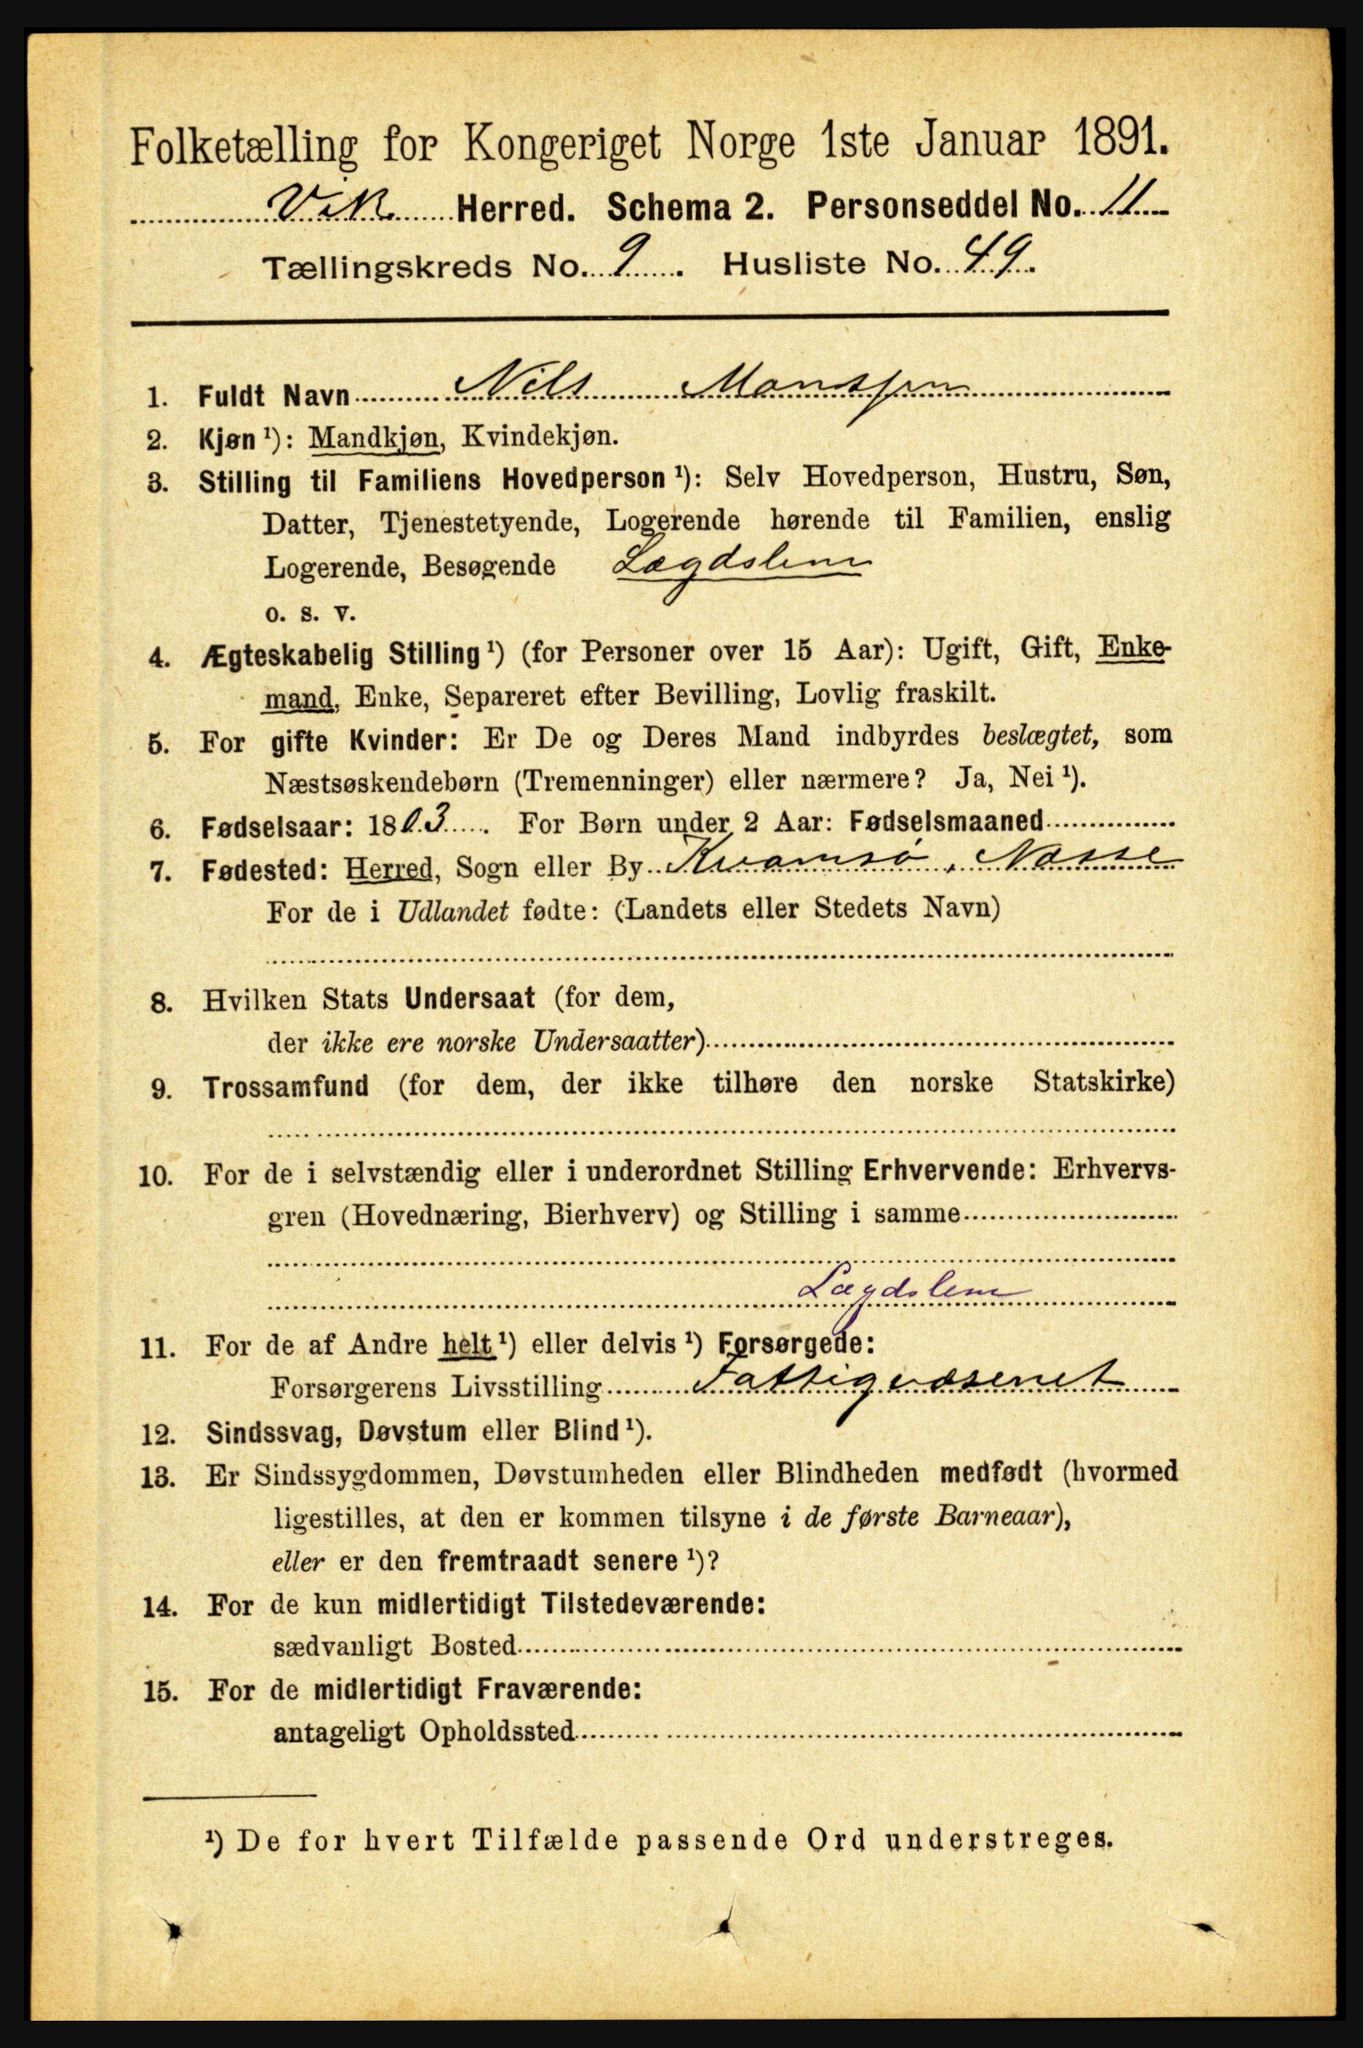 Folketælling for Kongeriget Norge 1ste Januar 1891.
Vik Herred. Schema 2. Personseddel No. 11
Tællingskreds No. 9. Husliste No. 49.
1. Fuldt Navn Nils Monssen
2. Kjøn ¹): Mandkjøn, Kvindekjøn.
3. Stilling til Familiens Hovedperson ¹): Selv Hovedperson, Hustru, Søn,
Datter, Tjenestetyende, Logerende hørende til Familien, enslig
Logerende, Besøgende Lægdslem
o. s. v.
4. Ægteskabelig Stilling ¹) (for Personer over 15 Aar): Ugift, Gift, Enke-
mand, Enke, Separeret efter Bevilling, Lovlig fraskilt.
5. For gifte Kvinder: Er De og Deres Mand indbyrdes beslægtet, som
Næstsøskendebørn (Tremenninger) eller nærmere? Ja, Nei ¹).
6. Fødselsaar: 1803. For Børn under 2 Aar: Fødselsmaaned
7. Fødested: Herred, Sogn eller By Kvamsø,
For de i Udlandet fødte: (Landets eller Stedets Navn)
8. Hvilken Stats Undersaat (for dem,
der ikke ere norske Undersaatter)
9. Trossamfund (for dem, der ikke tilhøre den norske Statskirke)
10. For de i selvstændig eller i underordnet Stilling Erhvervende: Erhvervs-
gren (Hovednæring, Bierhverv) og Stilling i samme
Lægdslem
11. For de af Andre helt ¹) eller delvis ¹) Forsørgede:
Forsørgerens Livsstilling Fattigvæsenet
12. Sindssvag, Døvstum eller Blind ¹).
13. Er Sindssygdommen, Døvstumheden eller Blindheden medfødt (hvormed
ligestilles, at den er kommen tilsyne i de første Barneaar),
eller er den fremtraadt senere ¹)?
14. For de kun midlertidigt Tilstedeværende:
sædvanligt Bosted
15. For de midlertidigt Fraværende:
antageligt Opholdssted
¹) De for hvert Tilfælde passende Ord understreges.